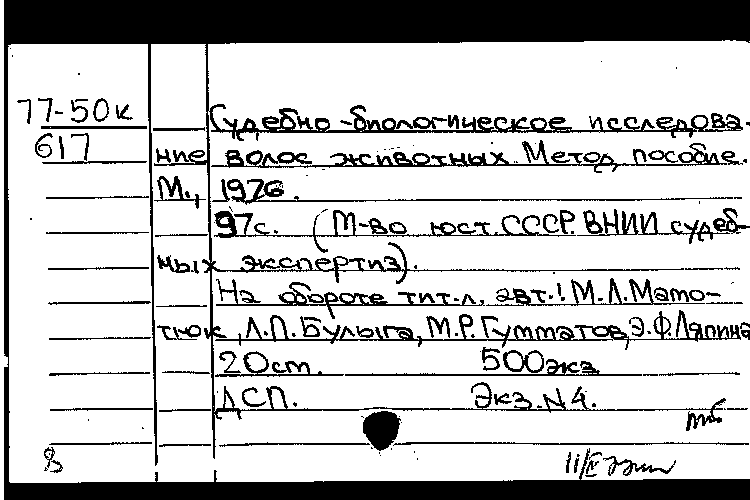 77-50к
Судебно-биологическое исследова-
617
ние волос животных. Метод. пособие.
М., 1976.
97с. (М-во юст. СССР. ВНИИ судеб-
ных экспертиз).
На обороте тит.л. авт.: М.Л.Мато-
тнюк, Л.П.Булыга, М.Р.Гумматов, Э.Ф.Ляпина
20ст. 500экз
ДСП. Экз. N4.